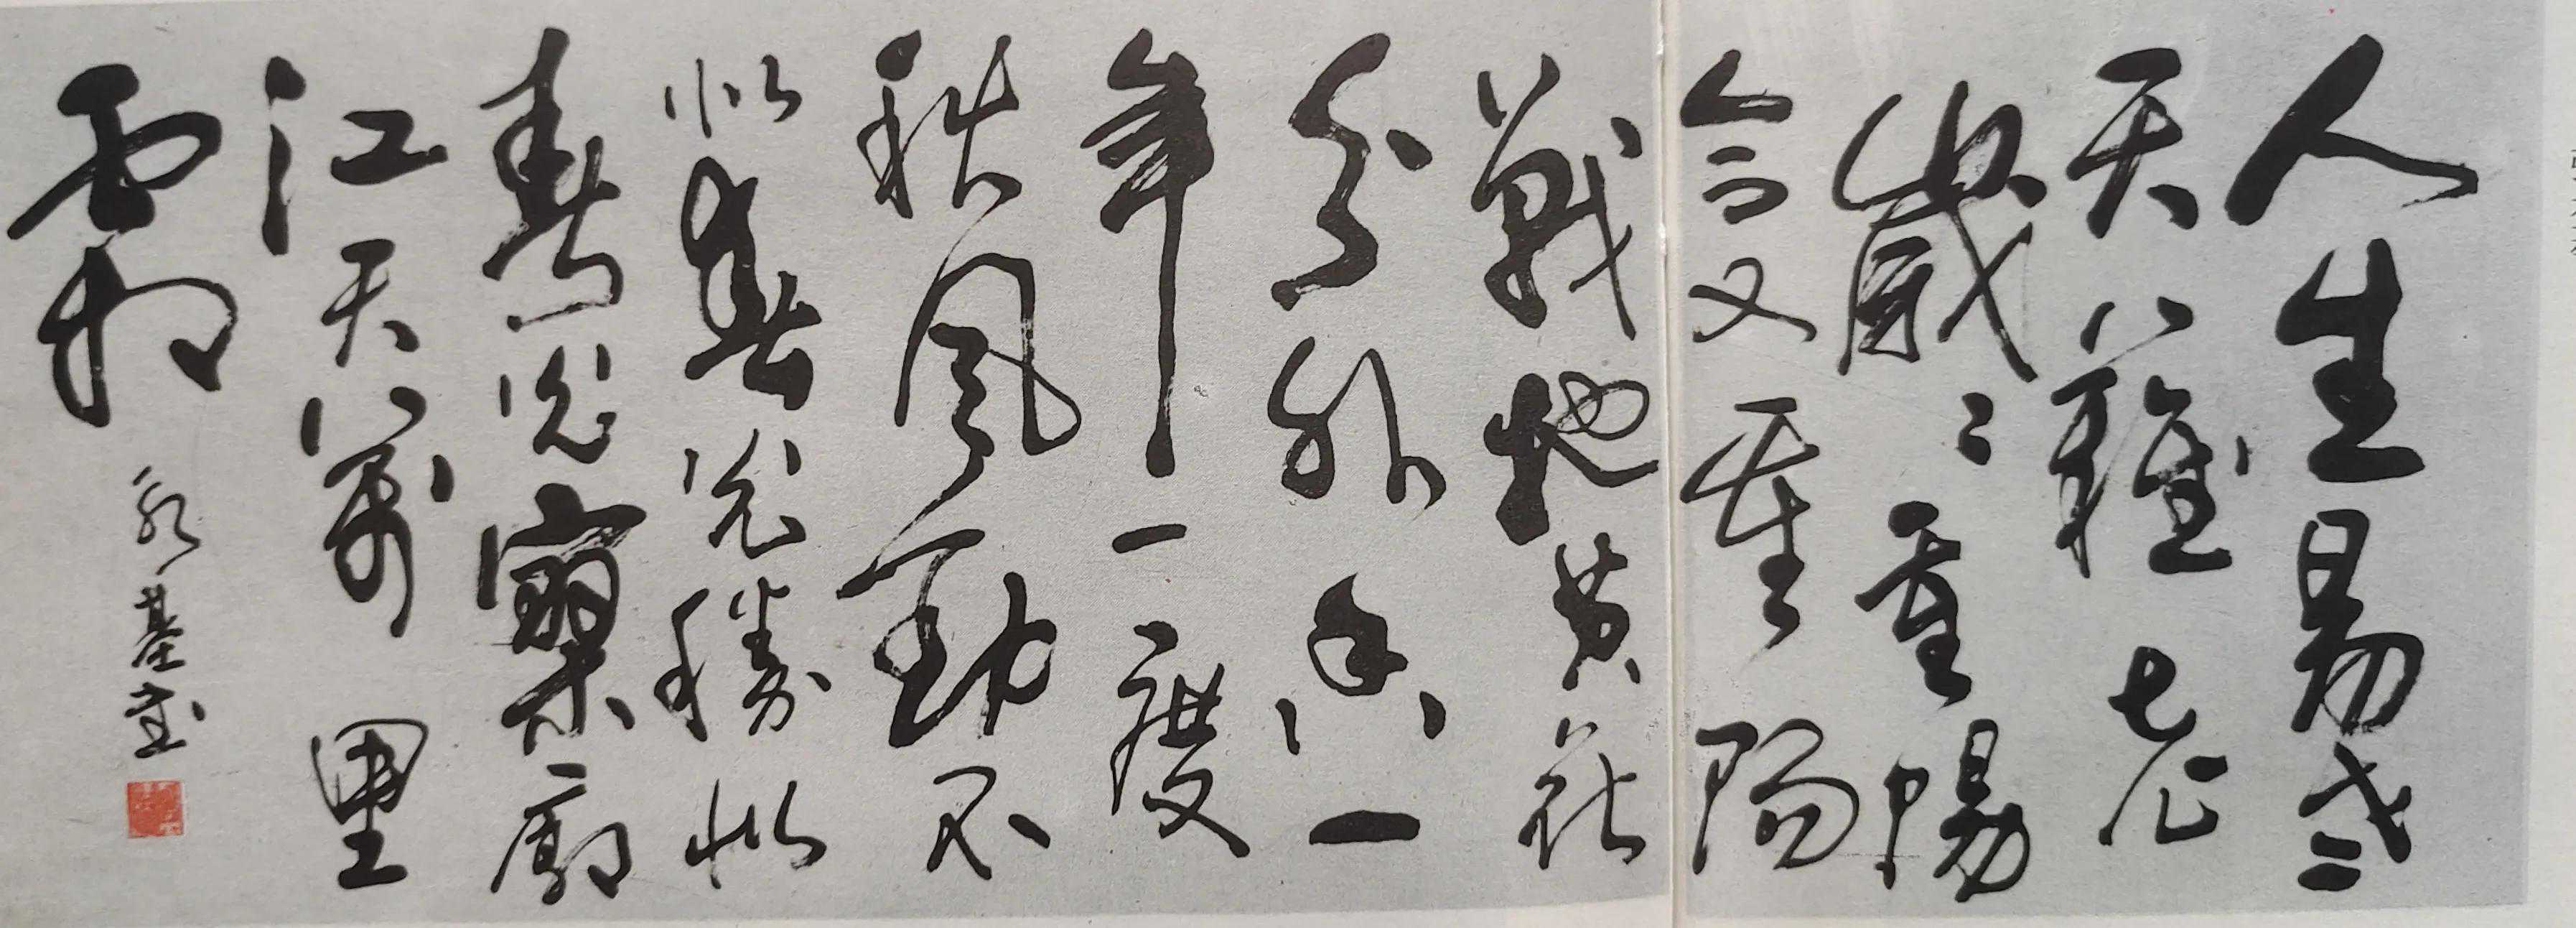 人生易老
天難老
歲〻重陽
今又重陽
戰地黃花
分外香一
年一度
秋風勁不
似春光勝似
春光寥廓
江天萬里
霜 永基書